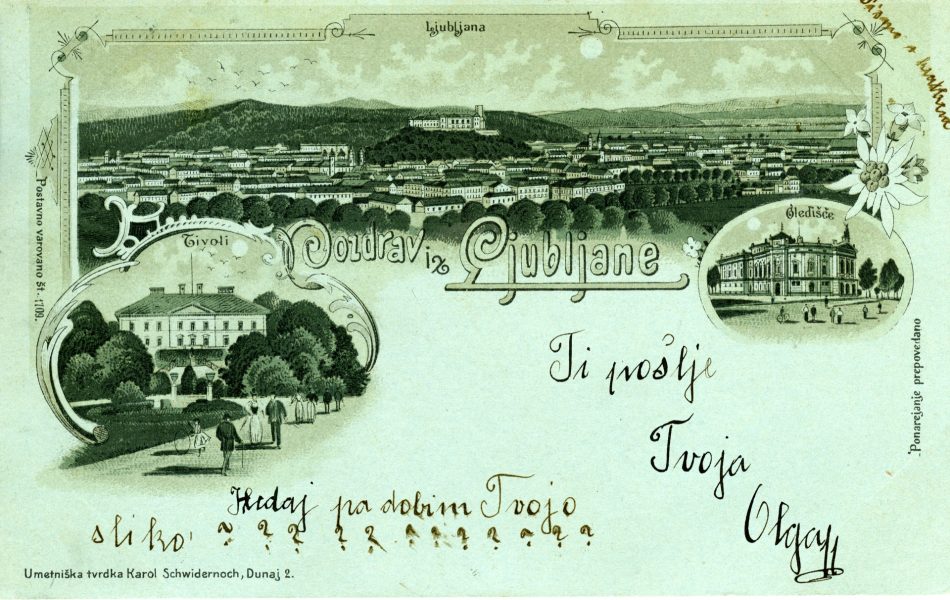 Ljubljana
Pismo s
Postavno varovano št. 1709.
Tivoli
Gledišče
Pozdrav iz Ljubljane
Ponarejanje prepovedano
Ti pošlje
Tvoja
Olga
Kedaj pa dobim Tvojo
sliko ? ? ? ? ? ? ? ? ? ? ?
Umetniška tvrdka Karol Schwidernoch, Dunaj 2.